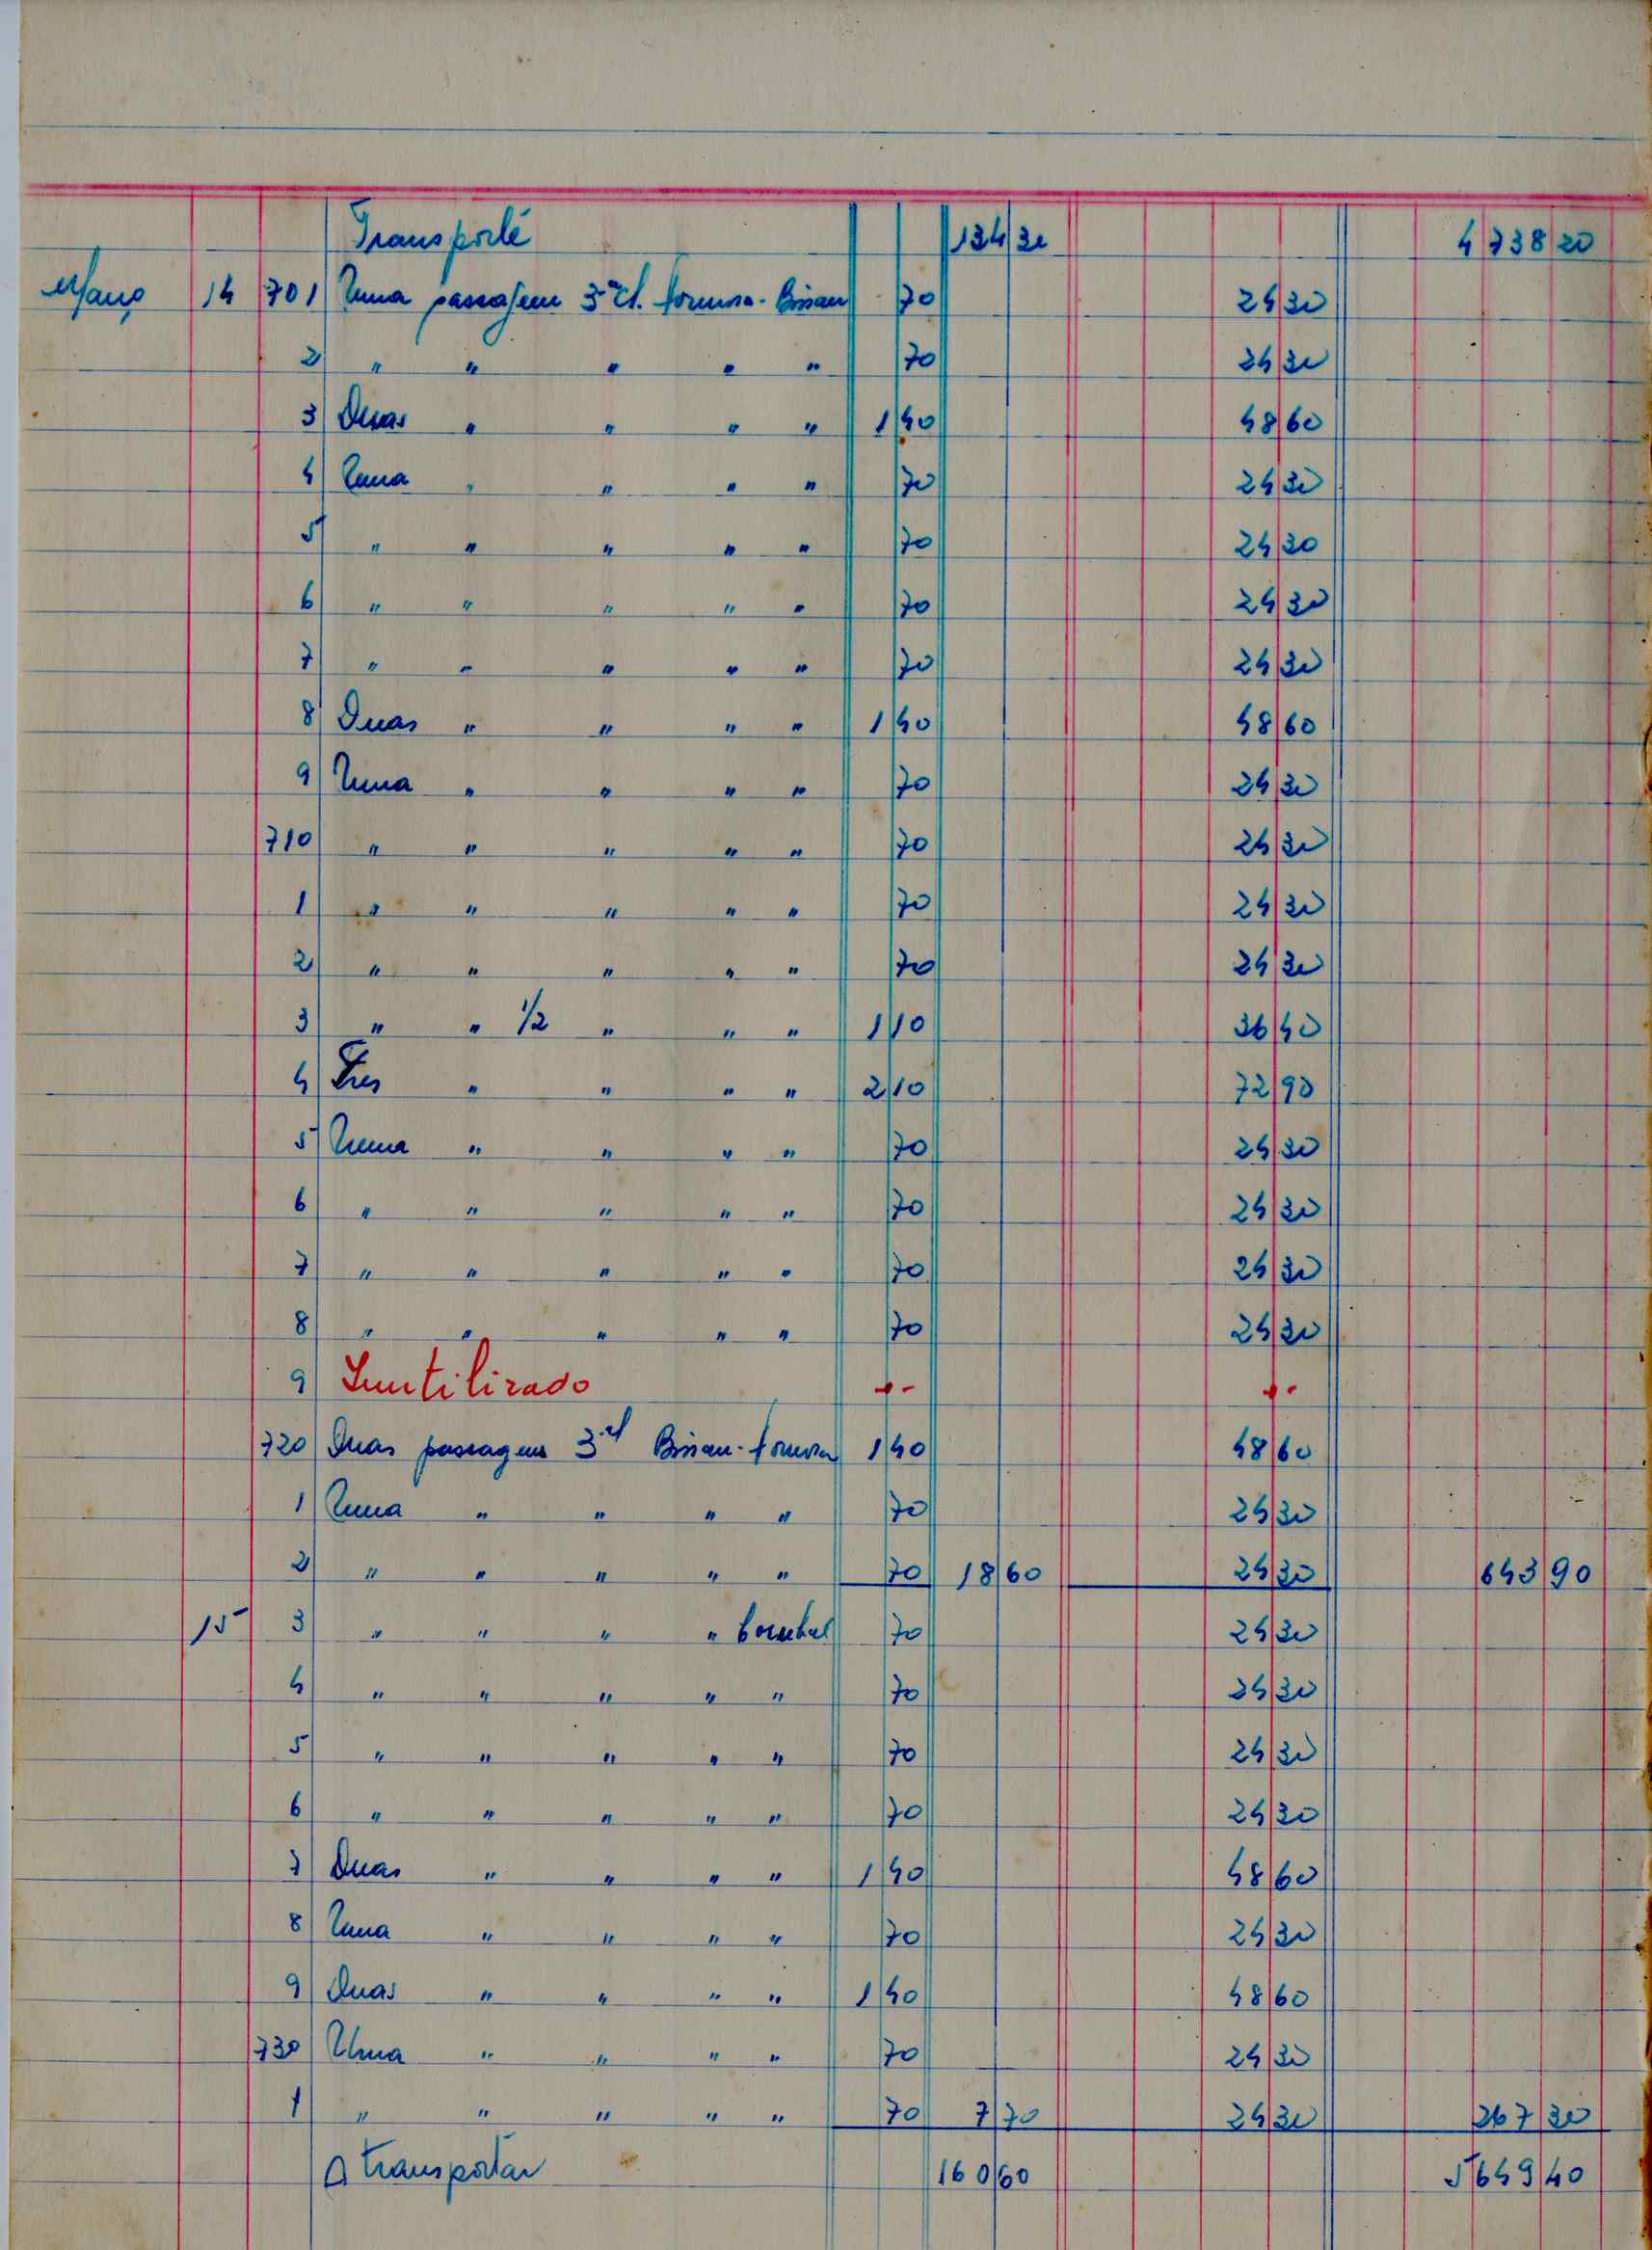 Transporte 134 30 4 738 20
Março 14 701 Uma passagem 3ª cl. Formosa - Bissau 70 24 30
2 " " " " " 70 24 30
3 Duas " " " " 1 40 48 60
4 Uma " " " " 70 24 30
5 " " " " " 70 24 30
6 " " " " " 70 24 30
7 " " " " " 70 24 30
8 Duas " " " " 1 40 48 60
9 Uma " " " " 70 24 30
710 " " " " " 70 24 30
1 " " " " " 70 24 30
2 " " " " " 70 24 30
3 " " 1/2 " " " 1 10 36 40
4 Tres " " " " 2 10 72 90
5 Uma " " " " 70 24 30
6 " " " " " 70 24 30
7 " " " " " 70 24 30
8 " " " " " 70 24 30
9 Inutilizado - - - -
720 Duas passagens 3ª cl Bissau - Formosa 1 40 48 60
1 Uma " " " " 70 24 30
2 " " " " " 70 18 60 24 30 643 90
15 3 " " " " 70 24 30
4 " " " " " 70 24 30
5 " " " " " 70 24 30
6 " " " " " 70 24 30
7 Duas " " " " 1 40 48 60
8 Uma " " " " 70 24 30
9 Duas " " " " 1 40 48 60
730 Uma " " " " 70 24 30
1 " " " " " 70 7 70 24 30 267 30
A transportar 160 60 5 649 40